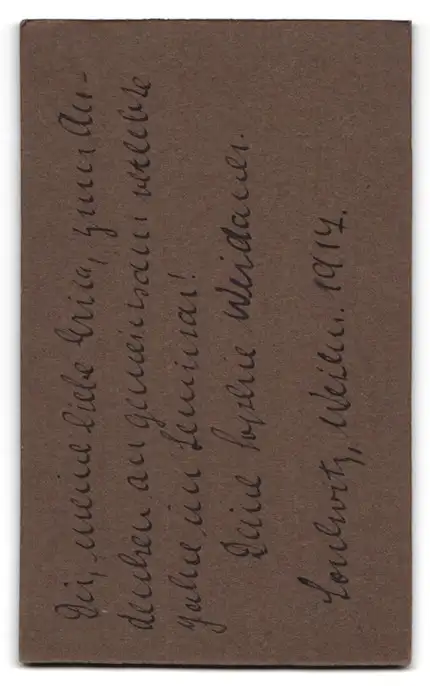 Dir, meine liebe Erica, zum An-
denken an gemeinsam verlebte
Jahre im Seminar!
Deine Sophie Weidauer.
Lockwitz, Weihn. 1917.